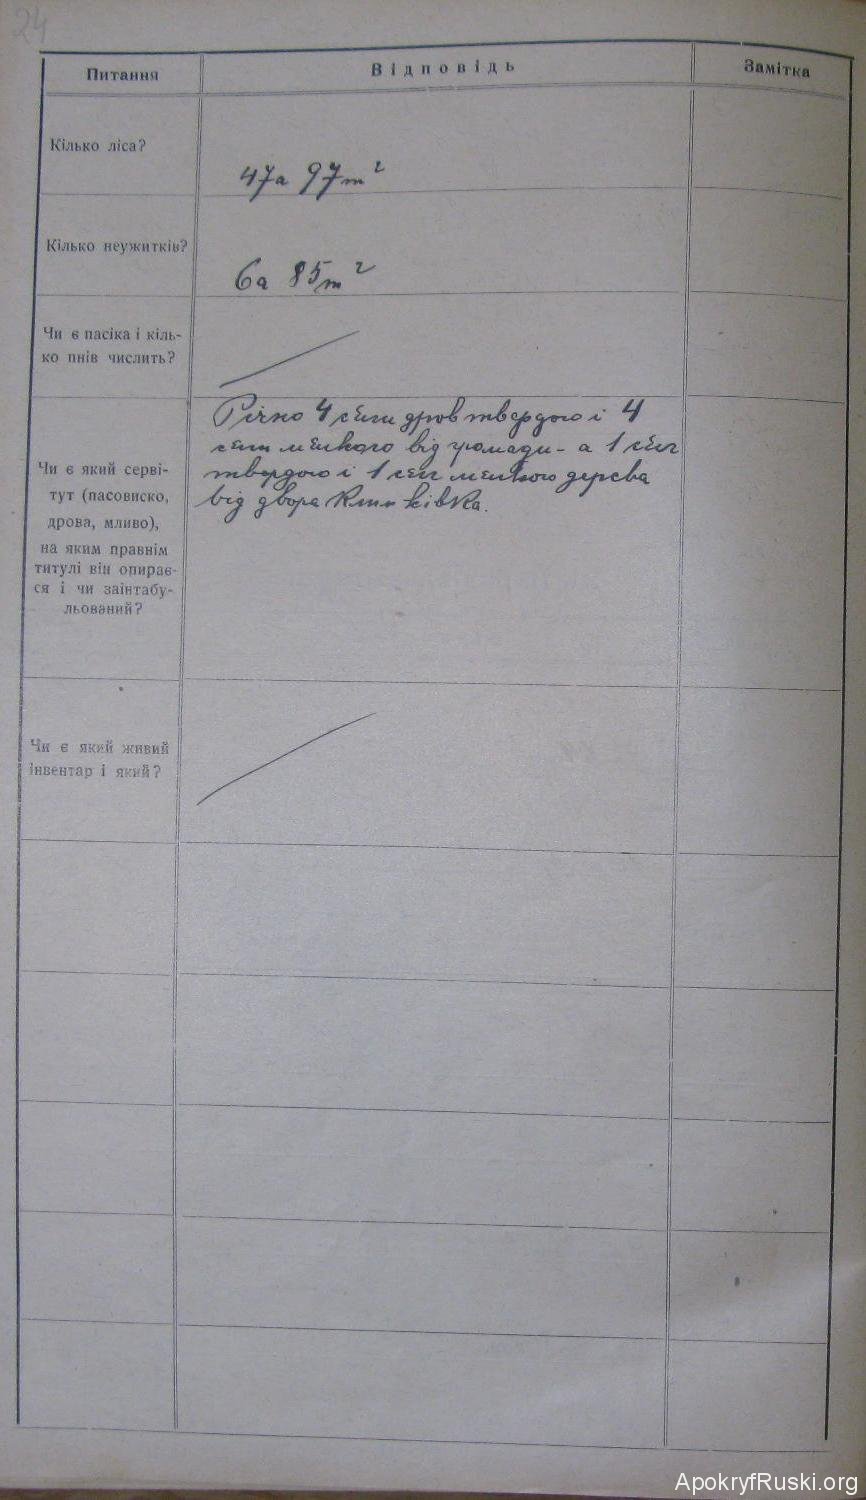 24
Питання
Відповідь
Замітка
Кілько ліса?
47а 97m²
Кілько неужитків?
6а 85m²
Чи є пасіка і кіль-
ко пнів числить?
Чи є який серві-
тут (пасовиско,
дрова, мливо),
на яким правнім
титулі він опирає-
ся і чи заінтабу-
льований?
Річно 4 сяги дров твердого і 4
сяги мягкого від громади - а 1 сяг
твердого і 1 сяг мягкого дерева
від двора Климківка.
Чи є який живий
інвентар і який?
ApokryfRuski.org